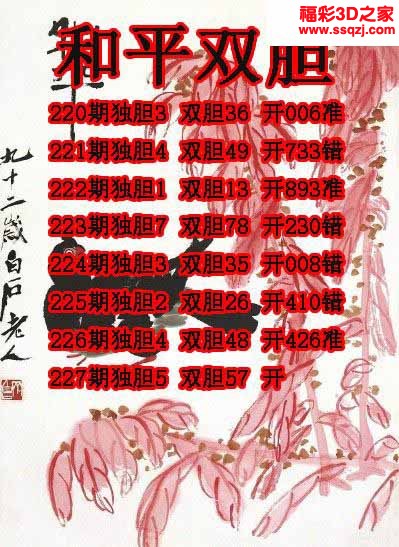 福彩3D之家
www.ssqzj.com
和平双胆
220期独胆3 双胆36 开006准
221期独胆4 双胆49 开733错
222期独胆1 双胆13 开893准
223期独胆7 双胆78 开230错
224期独胆3 双胆35 开008错
225期独胆2 双胆26 开410错
226期独胆4 双胆48 开426准
227期独胆5 双胆57 开
九十二岁白石老人